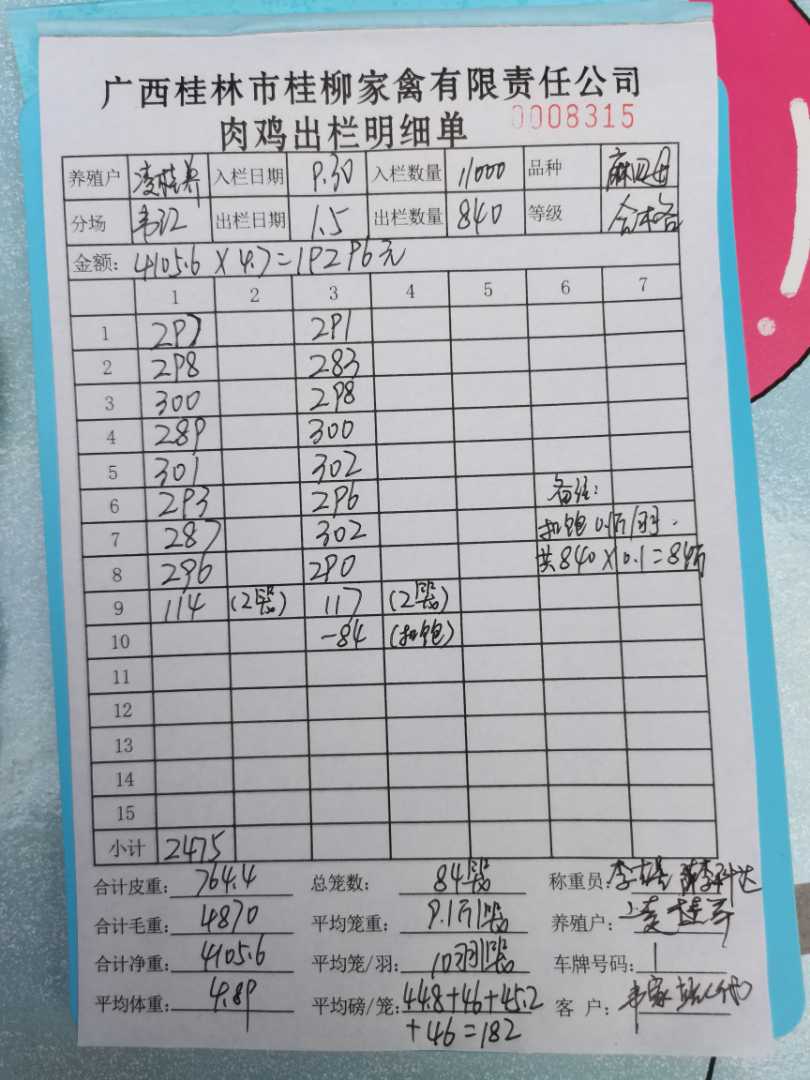 广西桂林市桂柳家禽有限责任公司
肉鸡出栏明细单 0008315
养殖户 凌桂养 入栏日期 9.30 入栏数量 11000 品种 麻四母
分场 韦江 出栏日期 1.5 出栏数量 840 等级 合格
金额: 4105.6 X 4.7=19296元
1 2 3 4 5 6 7
1 297 291
2 298 283
3 300 298
4 289 300
5 301 302
6 293 296 备注:
7 287 302 扣饱0.1斤/羽.
8 296 290 共840X0.1=84斤
9 114 (2笼) 117 (2笼)
10 -84 (扣饱)
11
12
13
14
15
小计 2475
合计皮重: 764.4 总笼数: 84笼 称重员:
合计毛重: 4870 平均笼重: 9.1斤/笼 养殖户: 凌桂养
合计净重: 4105.6 平均笼/羽: 10羽/笼 车牌号码: /
平均体重: 4.89 平均磅/笼: 44.8+46+45.2 客 户:
+46=182